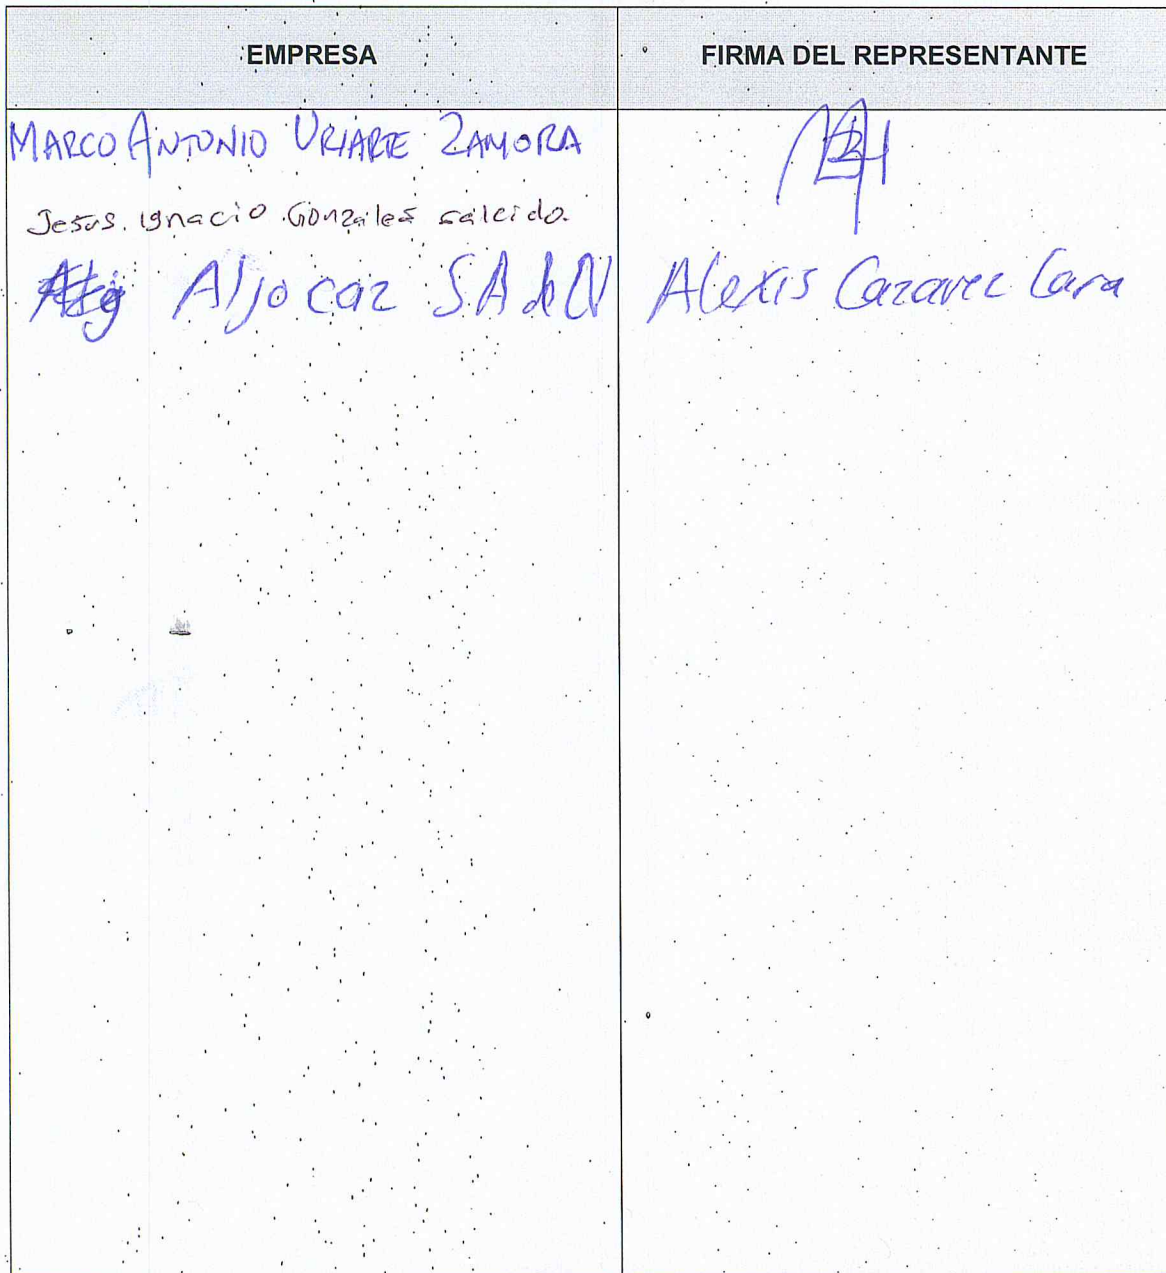 EMPRESA FIRMA DEL REPRESENTANTE
MARCO ANTONIO URIARTE ZAMORA
Jesus Ignacio Gonzales salcido.
Aljocaz SA de CV Alexis Cazarez Lara